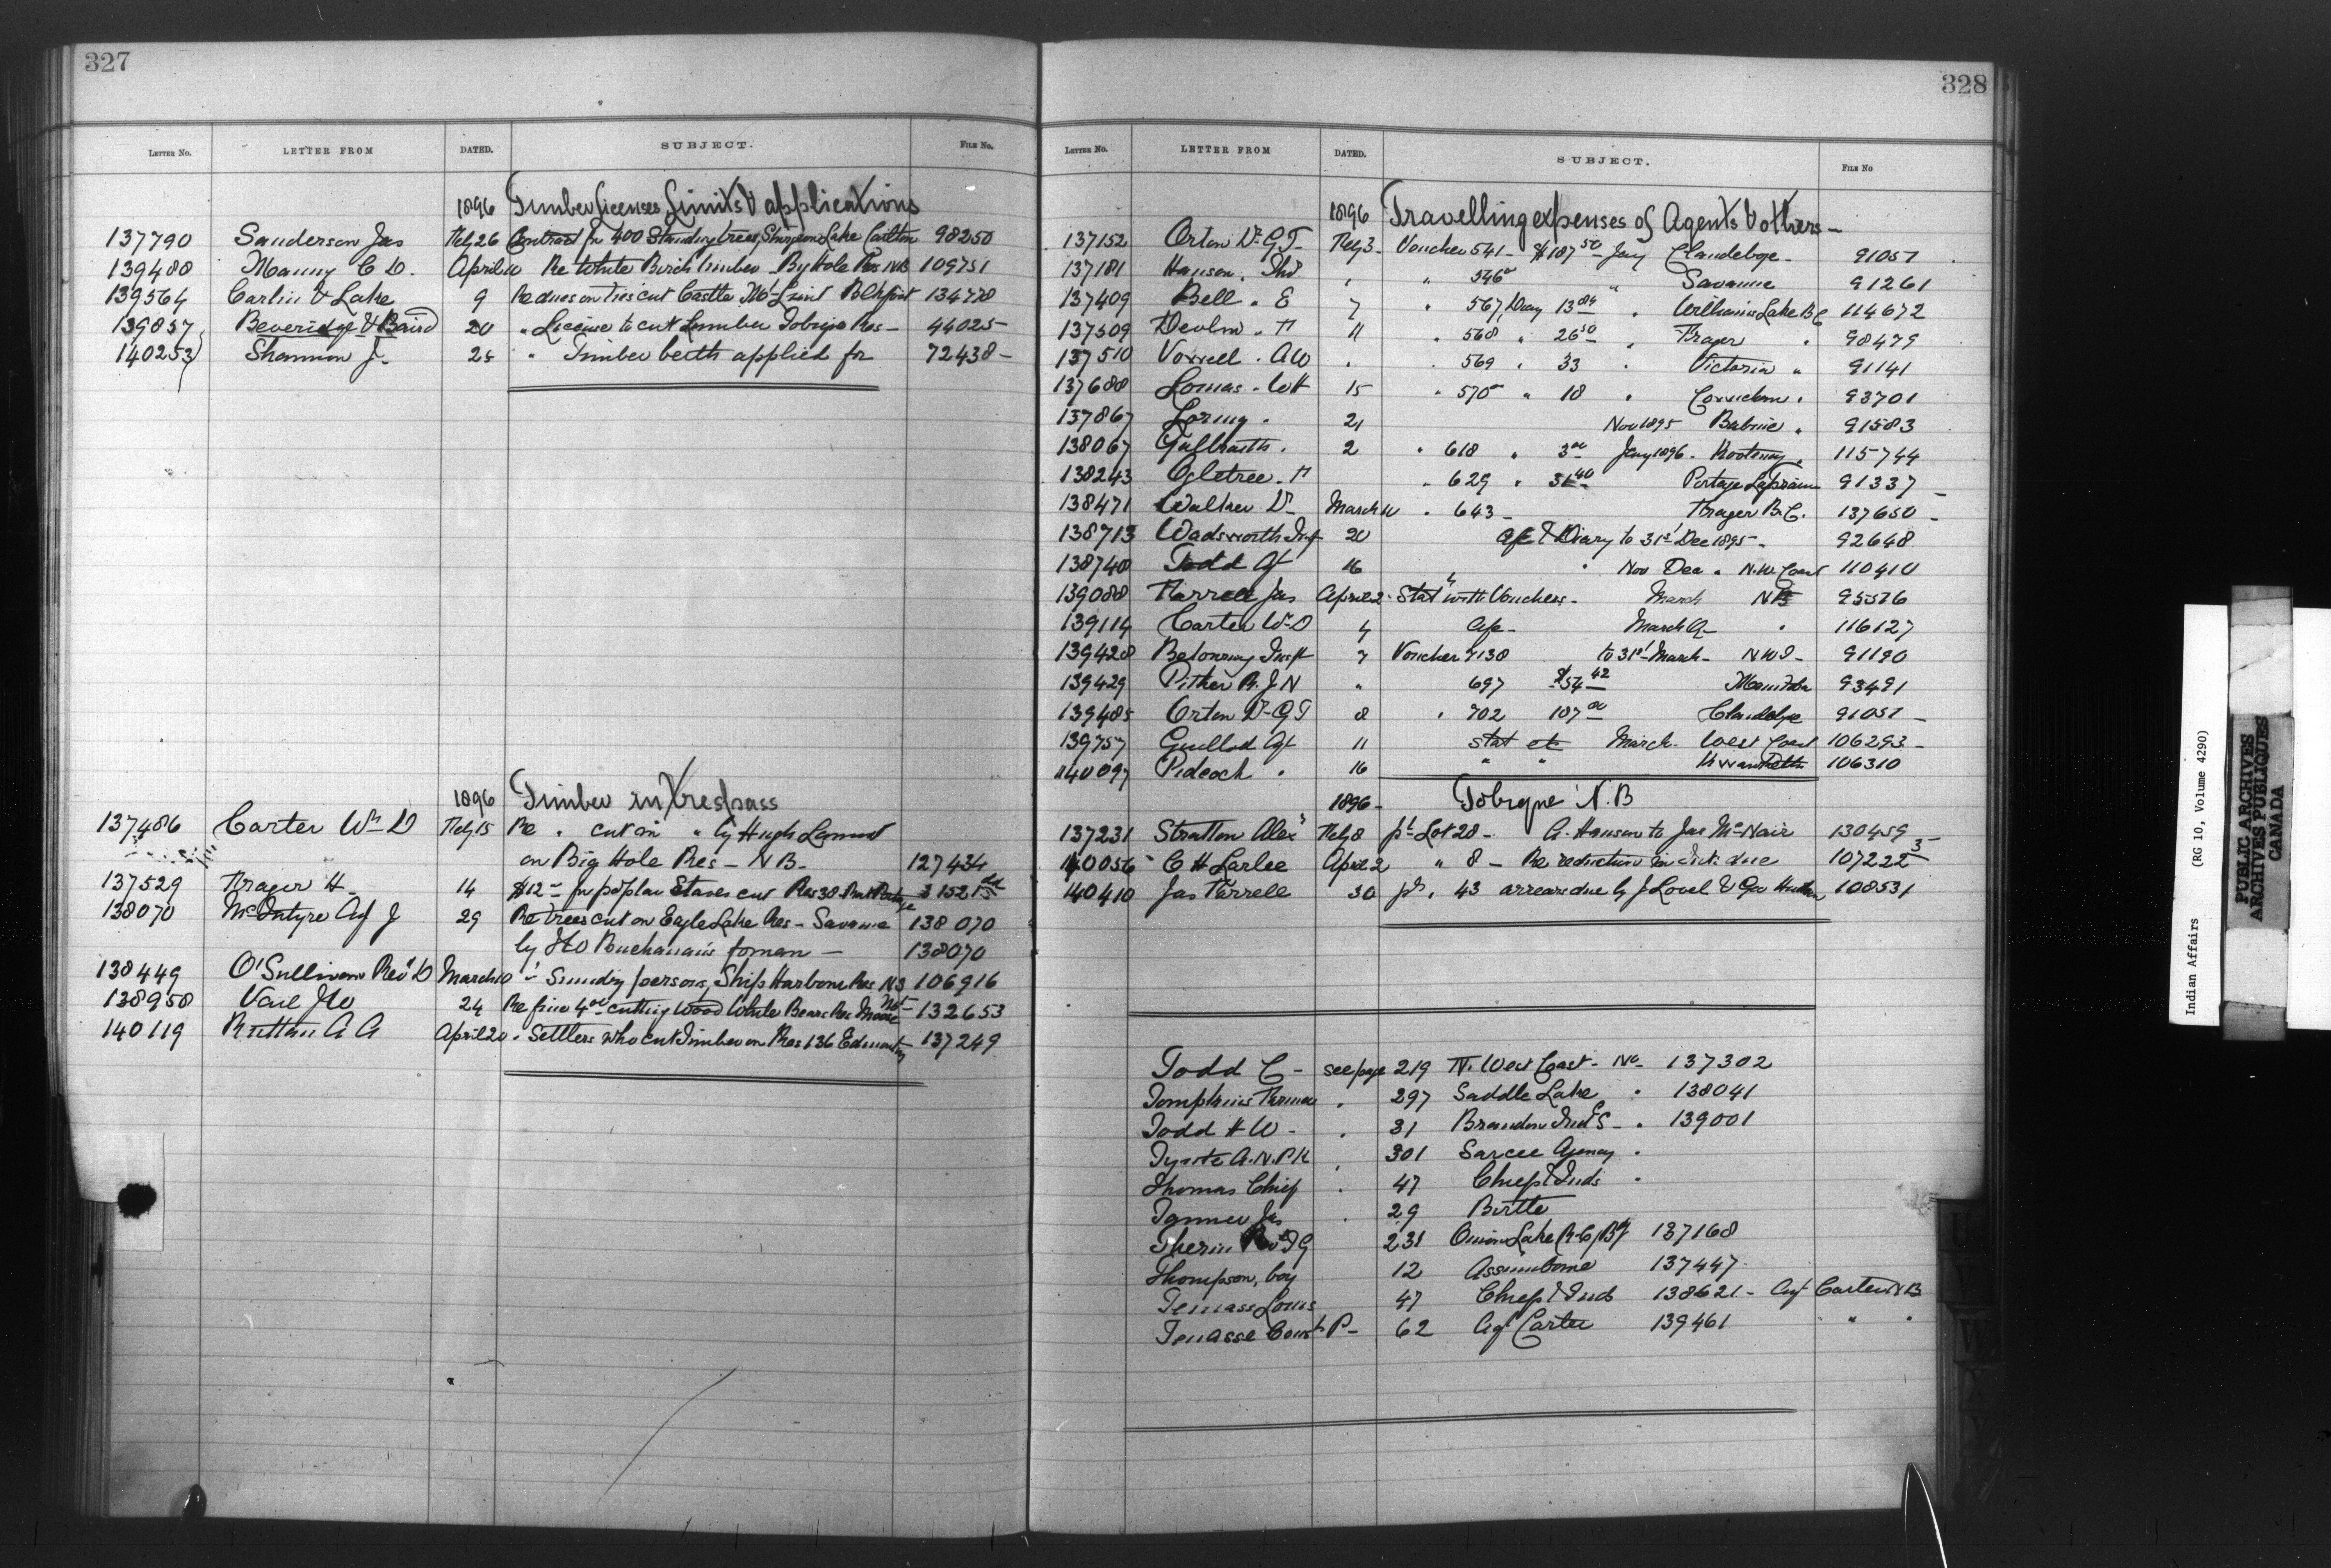 327
LETTER No. LETTER FROM DATED. SUBJECT. FILE No.
1896 Timber Licenses, Limits & applications
137790 Sanderson Jas Feby 26 Contract for 400 Standing trees, Sturgeon Lake Carlton 98250
139480 Manny C D. April 10 Re White Birch timber - Big Hole Res NB 109751
139564 Carlin & Lake 9 Re dues on ties cut Castle Mt
139857 Beveridge & Baird 20 " License to cut Lumber Tobique Res - 44025 -
140253 Shannon J. 25 " Timber berth applied for 72438 -
1896 Timber in Trespass
137486 Carter Wm D Feby 15 Re " cut on " by Hugh
on Big Hole Res - N B - 127434
137529 H - 14 $12 - for poplar Staves cut Res 38 Rat Portage
138070 McIntyre Agt J 29 Re trees cut on Eagle Lake Res - Savanne 138070
by J W Buchanan's foreman - 138070
138449 O'Sullivan Revd D March 10 " - Sundry persons, Ship Harbour Res N S 106916
138958 Vail J W 24 Re fine 4 00 cutting Wood White Bears Res Moose Mt - 132653
140119 Ruttan A A April 20 " Settlers who cut Timber on Res 136 Edmonton 137249
328
LETTER No. LETTER FROM DATED. SUBJECT. FILE No
1896 Travelling expenses of Agents & others -
137152 Orton Dr G T - Feby 3 - Voucher 541 - $187 50 - Jany Clandeboye - 91057
137181 Hanson. " " 546 " Savanne 91261
137409 Bell. E 7 " 567, 13 84 " Williams Lake B C 114672
137509 Devlin. 11 " 568 " 26 50 " Fraser " 98479
137510 Vowell. A W " " 569 " 33 " Victoria " 91141
137688 Lomas. W H 15 " 570 " 18 " Cowichan " 93701
137867 Loring. 21 Nov 1895 Babine " 91583
138067 Galbraith. 2 " 618 " 3 00 Jany 1896 - Kootenay " 115744
138243 Ogletree. F " 629 " 31 40 Portage La Prairie 91337 -
138471 Walker Dr - March 10 " 643 - Fraser B.C. 137650 -
138713 Wadsworth Insp 20 a/c & Diary to 31st Dec 1895 - 92648
138740 Todd Agt 16 " Nov Dec " N.W. Coast 110410
139088 Farrell Jas April 2 Statt with Vouchers - March NB 95576
139114 Carter Wm D 4 a/c - March " 116127
139428 Betournay Inspt 7 Voucher 7138 to 31st March - N W T - 91190
139429 Pither R. J N " 697 $54 42 Manitoba 93491
139485 Orton Dr G T 8 " 702 107 00 Clandeboye 91057 -
139757 Guillod Agt 11 stat etc March - West Coast 106293 -
140097 Pidcock " 16 " " 106310
1896 - Tobique N.B
137231 Stratton Alexr Feby 8 pt Lot 28 - A. Hanson to Jas McNair 130459
140056 C H Larlee April 2 " 8 - Re reduction in due
140410 Jas Farrell 30 pt. 43 arrears due by J Lovel & Geo 108531
Todd C - see page 219 N. West Coast - No - 137302
Tompkins Farmer " 297 Saddle Lake " 138041
Todd H W - " 31 Brandon Ind S - " 139001
A.N.P.R " 301 Sarcee Agency "
Thomas Chief " 47 Chiefs & Inds "
Tanner Jas " 29 Birtle
Therien Revd J G 231 Onion Lake R.C. Bg 137168
Thompson, boy 12 Assiniboine 137447
Temass Louis 47 Chiefs & Inds 138621 - Agt Carter N B
Tenasse Const P - 62 Agt Carter 139461 " " "
Indian Affairs (RG 10, Volume 4290)
PUBLIC ARCHIVES
ARCHIVES PUBLIQUES
CANADA